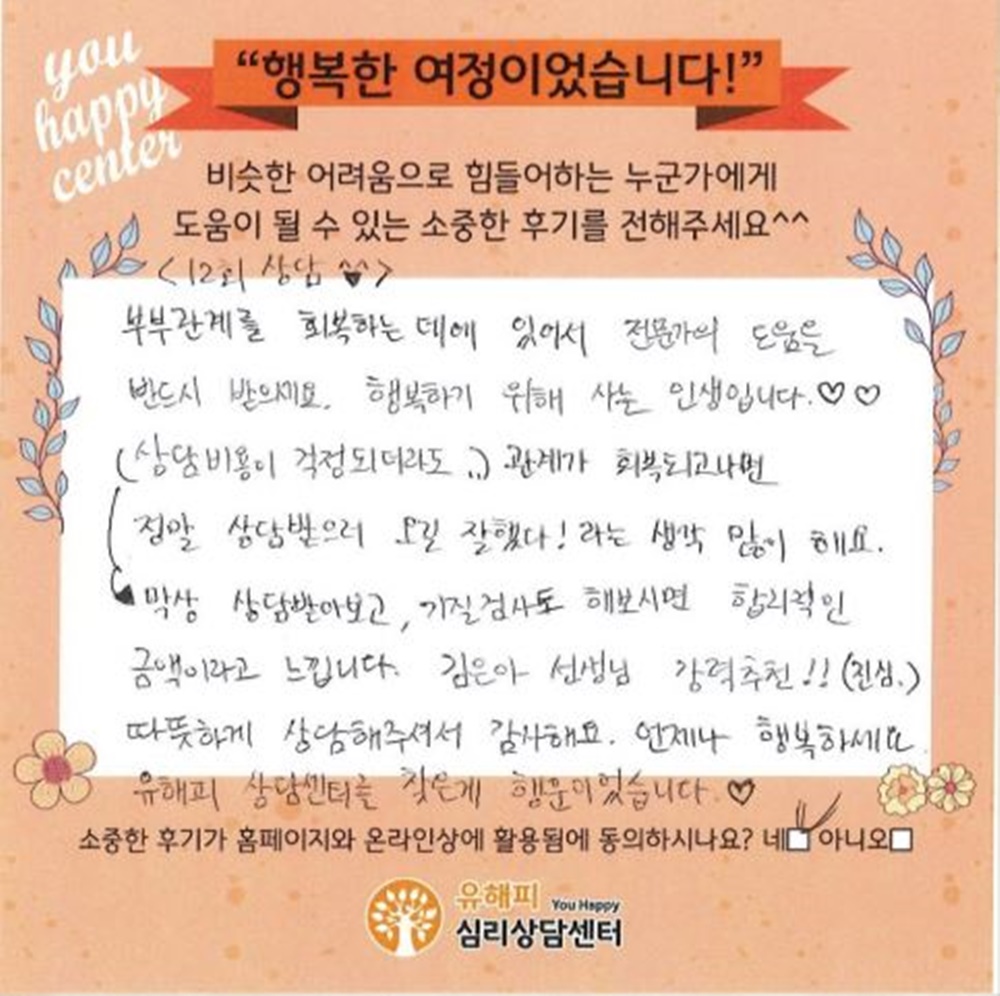 you
happy
center
“행복한 여정이었습니다!”
비슷한 어려움으로 힘들어하는 누군가에게
도움이 될 수 있는 소중한 후기를 전해주세요^^
<12회 상담 ^^♥>
부부관계를 회복하는 데에 있어서 전문가의 도움을
반드시 받으세요. 행복하기 위해 사는 인생입니다.♡♡
(상담비용이 걱정되더라도..) 관계가 회복되고나면
정말 상담받으러 오길 잘했다! 라는 생각 많이 해요.
막상 상담받아보고, 기질검사도 해보시면 합리적인
금액이라고 느낍니다. 김은아 선생님 강력추천!! (진심.)
따뜻하게 상담해주셔서 감사해요. 언제나 행복하세요.
유해피 상담센터를 찾은게 행운이었습니다. ♡
소중한 후기가 홈페이지와 온라인상에 활용됨에 동의하시나요? 네☑ 아니오□
유해피 You Happy
심리상담센터